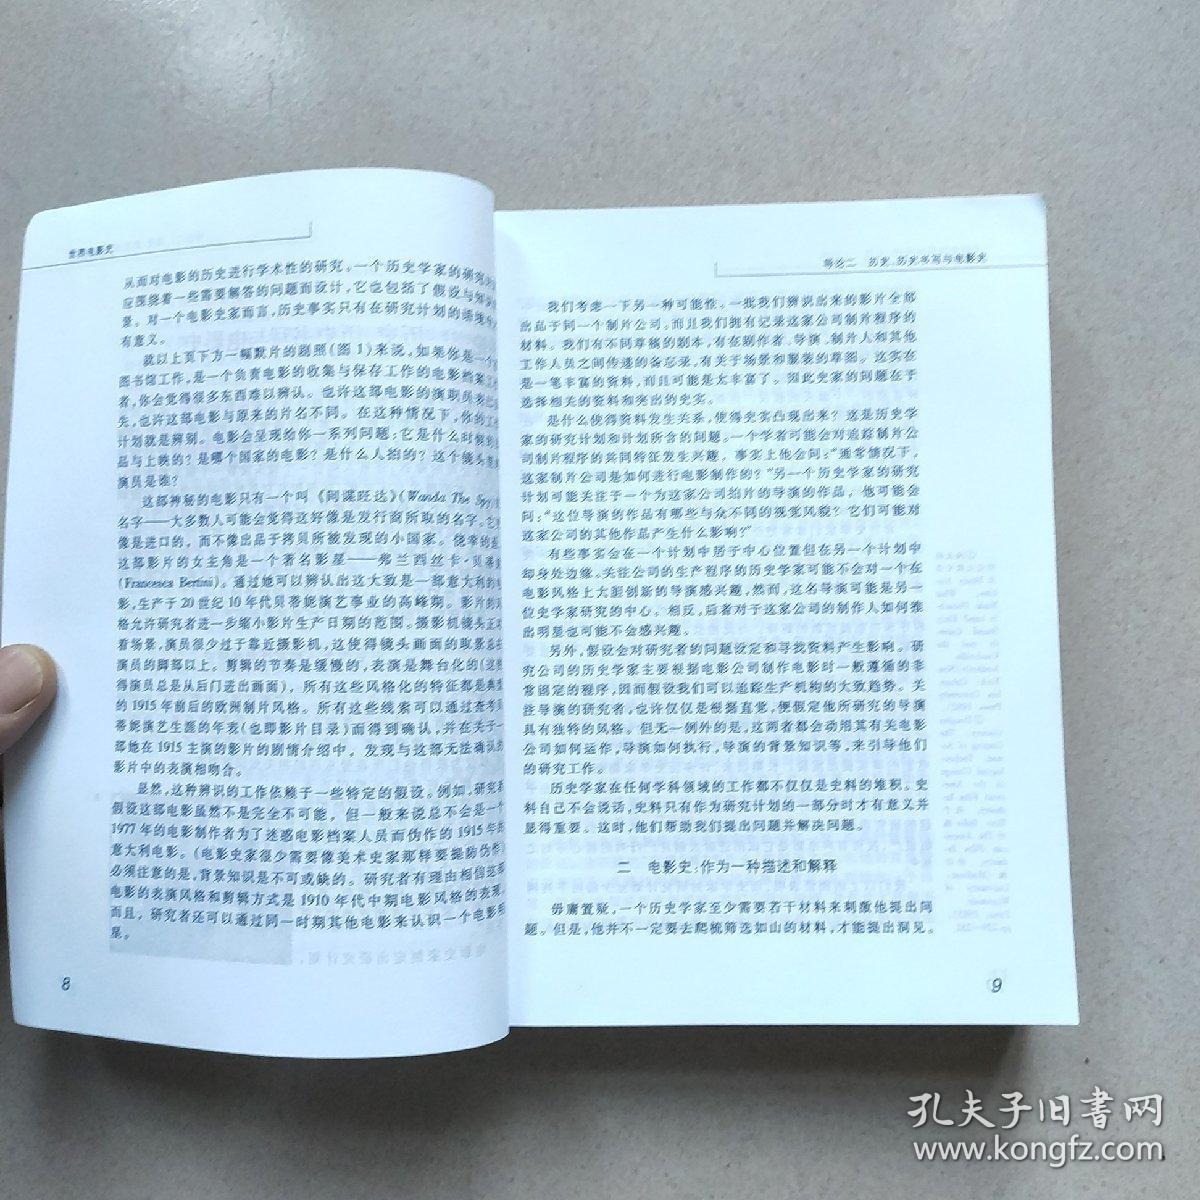 世界电影史
从而对电影的历史进行学术性的研究。一个历史学家的研究
应围绕着一些需要解答的问题而设计，它也包括了假设与
景。对一个电影史家而言，历史事实只有在研究计划的语境
有意义。
就以上页下方一幅默片的剧照(图1)来说，如果你是一个
图书馆工作，是一个负责电影的收集与保存工作的电影档案工
者，你会觉得很多东西难以辨认。也许这部电影的演职员表
失，也许这部电影与原来的片名不同。在这种情况下，你的工
计划就是辨别。电影会呈现给你一系列问题：它是什么时候
品与上映的？是哪个国家的电影？是什么人拍的？这个镜头
演员是谁？
这部神秘的电影只有一个叫《间谍旺达》(Wanda The Spy)
名字——大多数人可能会觉得这好像是发行商所取的名字。它
像是进口的，而不像出品于拷贝所被发现的小国家。侥幸的是，
这部影片的女主角是一个著名影星——弗兰西丝卡·贝蒂
(Francesca Bertini)。通过她可以辨认出这大致是一部意大利的
影，生产于20世纪10年代贝蒂妮演艺事业的高峰期。影片的
格允许研究者进一步缩小影片生产日期的范围。摄影机镜头正
着场景，演员很少过于靠近摄影机，这使得镜头画面的取景总
演员的脚部以上。剪辑的节奏是缓慢的，表演是舞台化的(这
得演员总是从后门进出画面)，所有这些风格化的特征都是典
的1915年前后的欧洲制片风格。所有这些线索可以通过查考
蒂妮演艺生涯的年表(也即影片目录)而得到确认，并在关于一
部她在1915主演的影片的剧情介绍中，发现与这部无法确认
影片中的表演相吻合。
显然，这种辨识的工作依赖于一些特定的假设。例如，研究
假设这部电影虽然不是完全不可能，但一般来说总不会是一个
1977年的电影制作者为了迷惑电影档案人员而伪作的1915年的
意大利电影。(电影史家很少需要像美术史家那样要提防伪作)
必须注意的是，背景知识是不可或缺的。研究者有理由相信这部
电影的表演风格和剪辑方式是1910年代中期电影风格的表现。
而且，研究者还可以通过同一时期其他电影来认识一个电影明
星。
8
导论二 历史、历史书写与电影史
我们考虑一下另一种可能性。一批我们辨认出来的影片全部
出品于同一个制片公司。而且我们拥有记录这家公司制片程序的
材料。我们有不同草稿的剧本，有在剧作者、导演、制片人和其他
工作人员之间传递的备忘录，有关于场景和服装的草图。这实在
是一笔丰富的资料，而且可能是太丰富了。因此史家的问题在于
选择相关的资料和突出的史实。
是什么使得资料发生关系，使得史实凸现出来？这是历史学
家的研究计划和计划所含的问题。一个学者可能会对追踪制片公
司制片程序的共同特征发生兴趣，事实上他会问：“通常情况下，
这家制片公司是如何进行电影制作的？”另一个历史学家的研究
计划可能关注于一个为这家公司拍片的导演的作品，他可能会
问：“这位导演的作品有哪些与众不同的视觉风貌？它们可能对
这家公司的其他作品产生什么影响？”
有些事实会在一个计划中居于中心位置但在另一个计划中
却身处边缘。关注公司的生产程序的历史学家可能不会对一个在
电影风格上大胆创新的导演感兴趣，然而，这名导演可能是另一
位史学家研究的中心。相反，后者对于这家公司的制作人如何推
出明星也可能不会感兴趣。
另外，假设会对研究者的问题设定和寻找资料产生影响。研
究公司的历史学家主要根据电影公司制作电影时一般遵循的非
常固定的程序，因而假设我们可以追踪生产机构的大致趋势。关
注导演的研究者，也许仅仅是根据直觉，便假定他所研究的导演
具有独特的风格。但无一例外的是，这两者都会动用其有关电影
公司如何运作，导演如何执行，导演的背景知识等，来引导他们
的研究工作。
历史学家在任何学科领域的工作都不仅仅是史料的堆积。史
料自己不会说话，史料只有作为研究计划的一部分时才有意义并
显得重要。这时，他们帮助我们提出问题并解决问题。
二 电影史：作为一种描述和解释
毋庸置疑，一个历史学家至少需要若干材料来刺激他提出问
题。但是，他并不一定要去爬梳筛选如山的材料，才能提出洞见。
9
孔夫子旧书网
www.kongfz.com